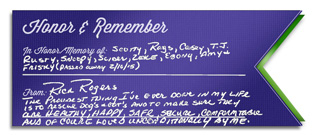 Honor & Remember
In Honor/Memory of: Scotty, Rags, Casey, T.J.
Rusty, Snoopy, Spider, Zeke, Ebony, Amy &
Frisky (passed away 2/10/15)
From: Rick Rogers
The proudest thing I've ever done in my life
is to rescue dogs & cats and to make sure they
are healthy, happy, safe, secure, comfortable
and of course loved unconditionally by me.